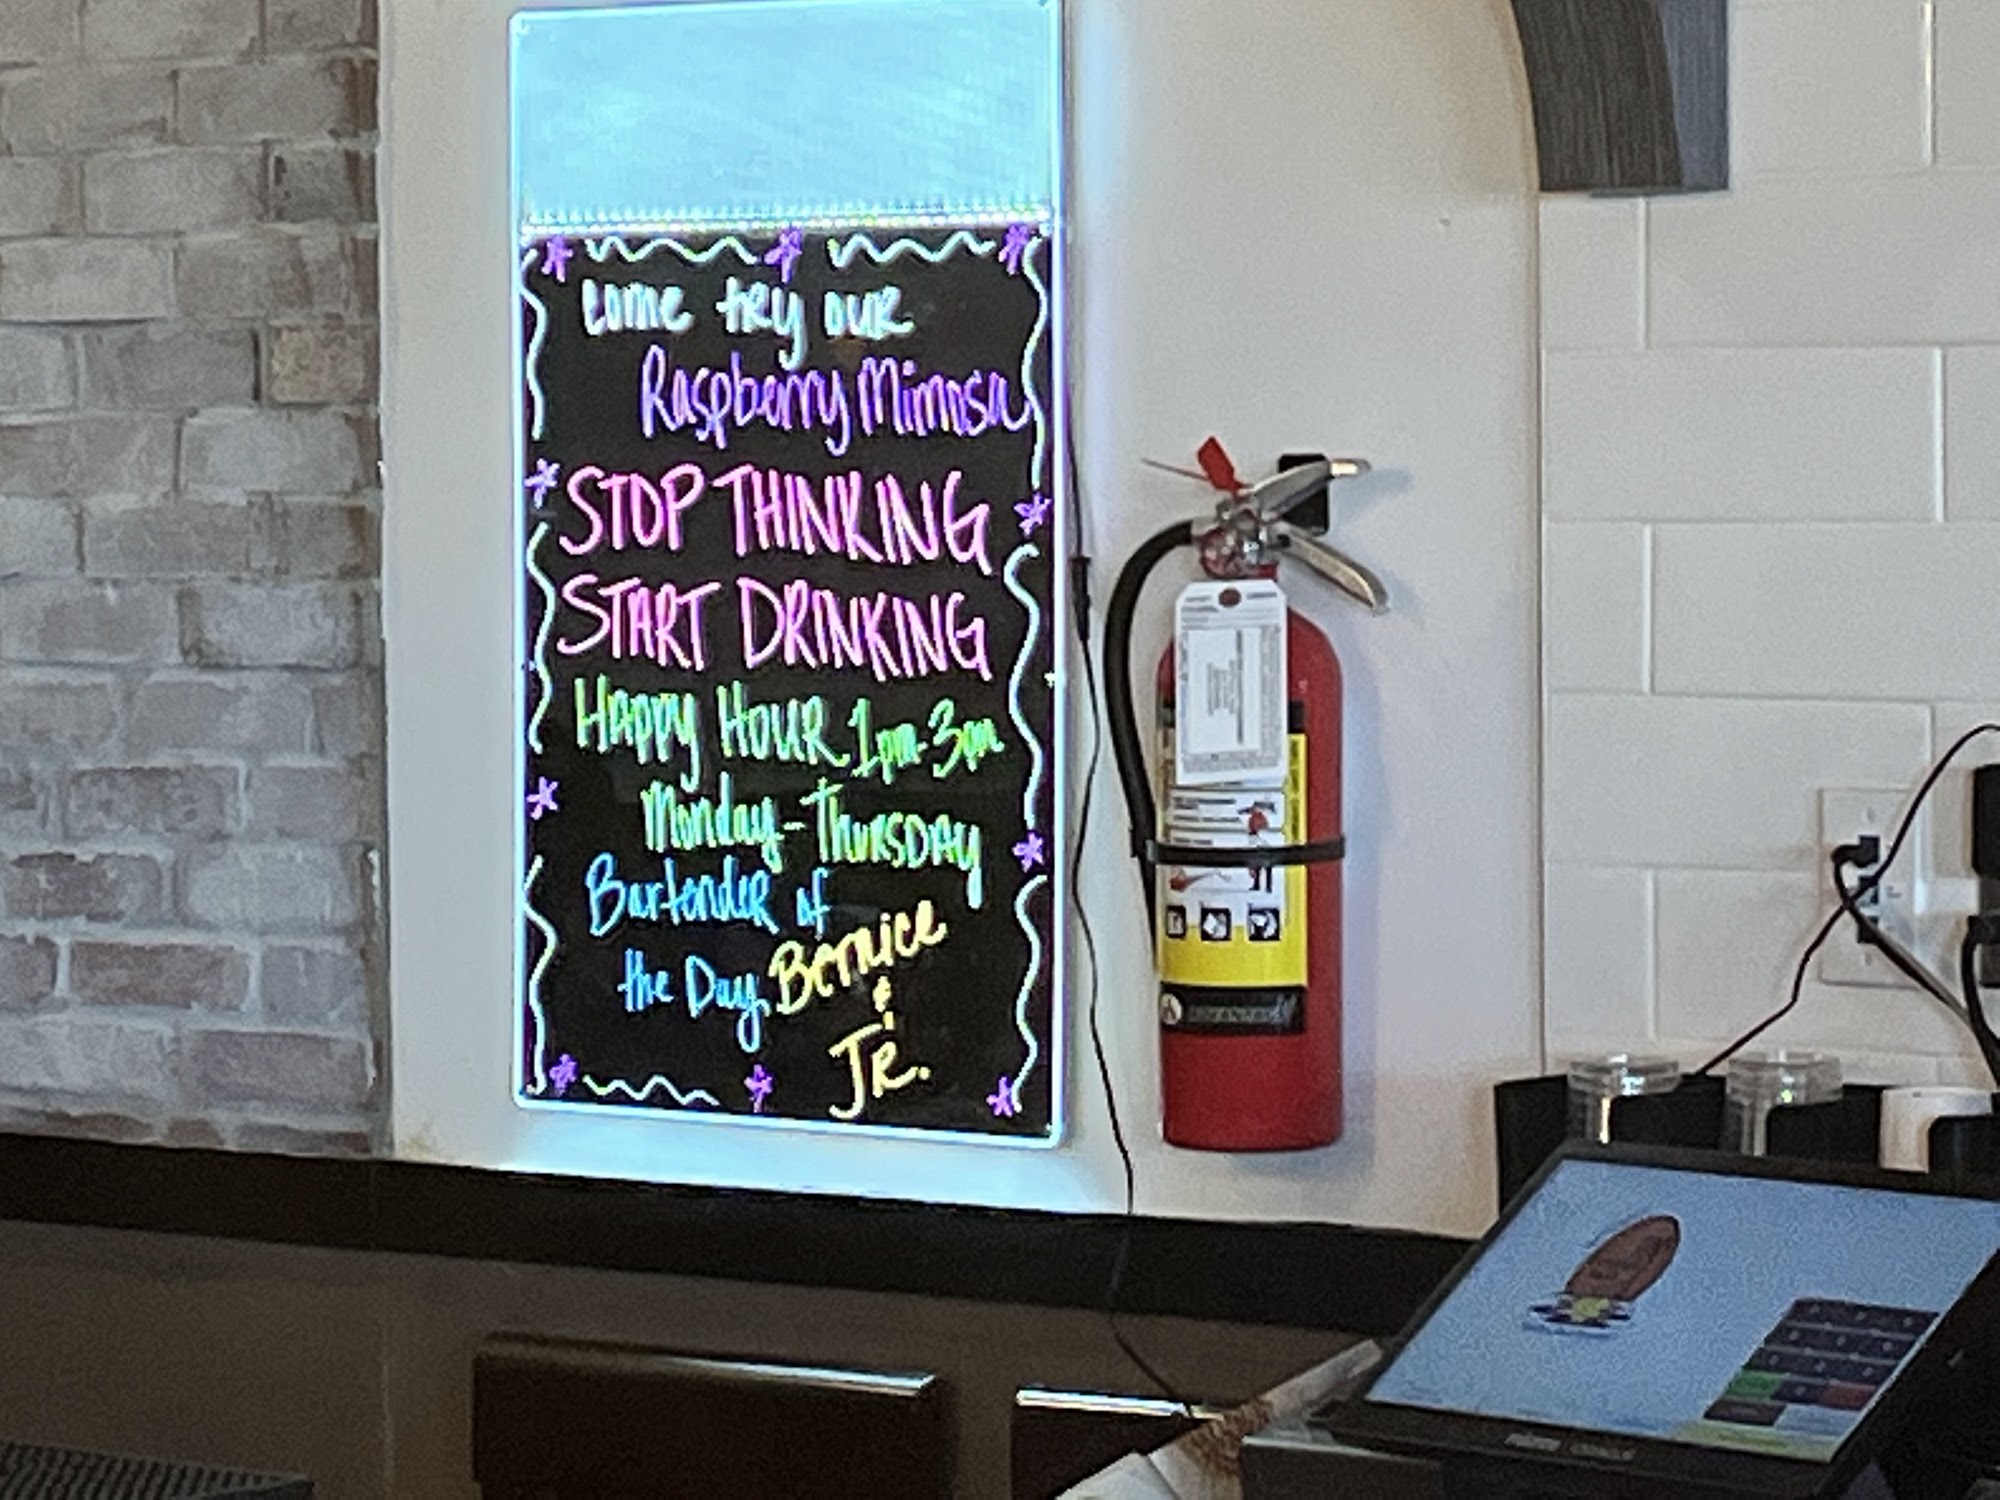 come try our
Raspberry Mimosa
STOP THINKING
START DRINKING
Happy Hour 1pm-3pm
Monday-Thursday
Bartender of
the Day, Bernice
&
JR.